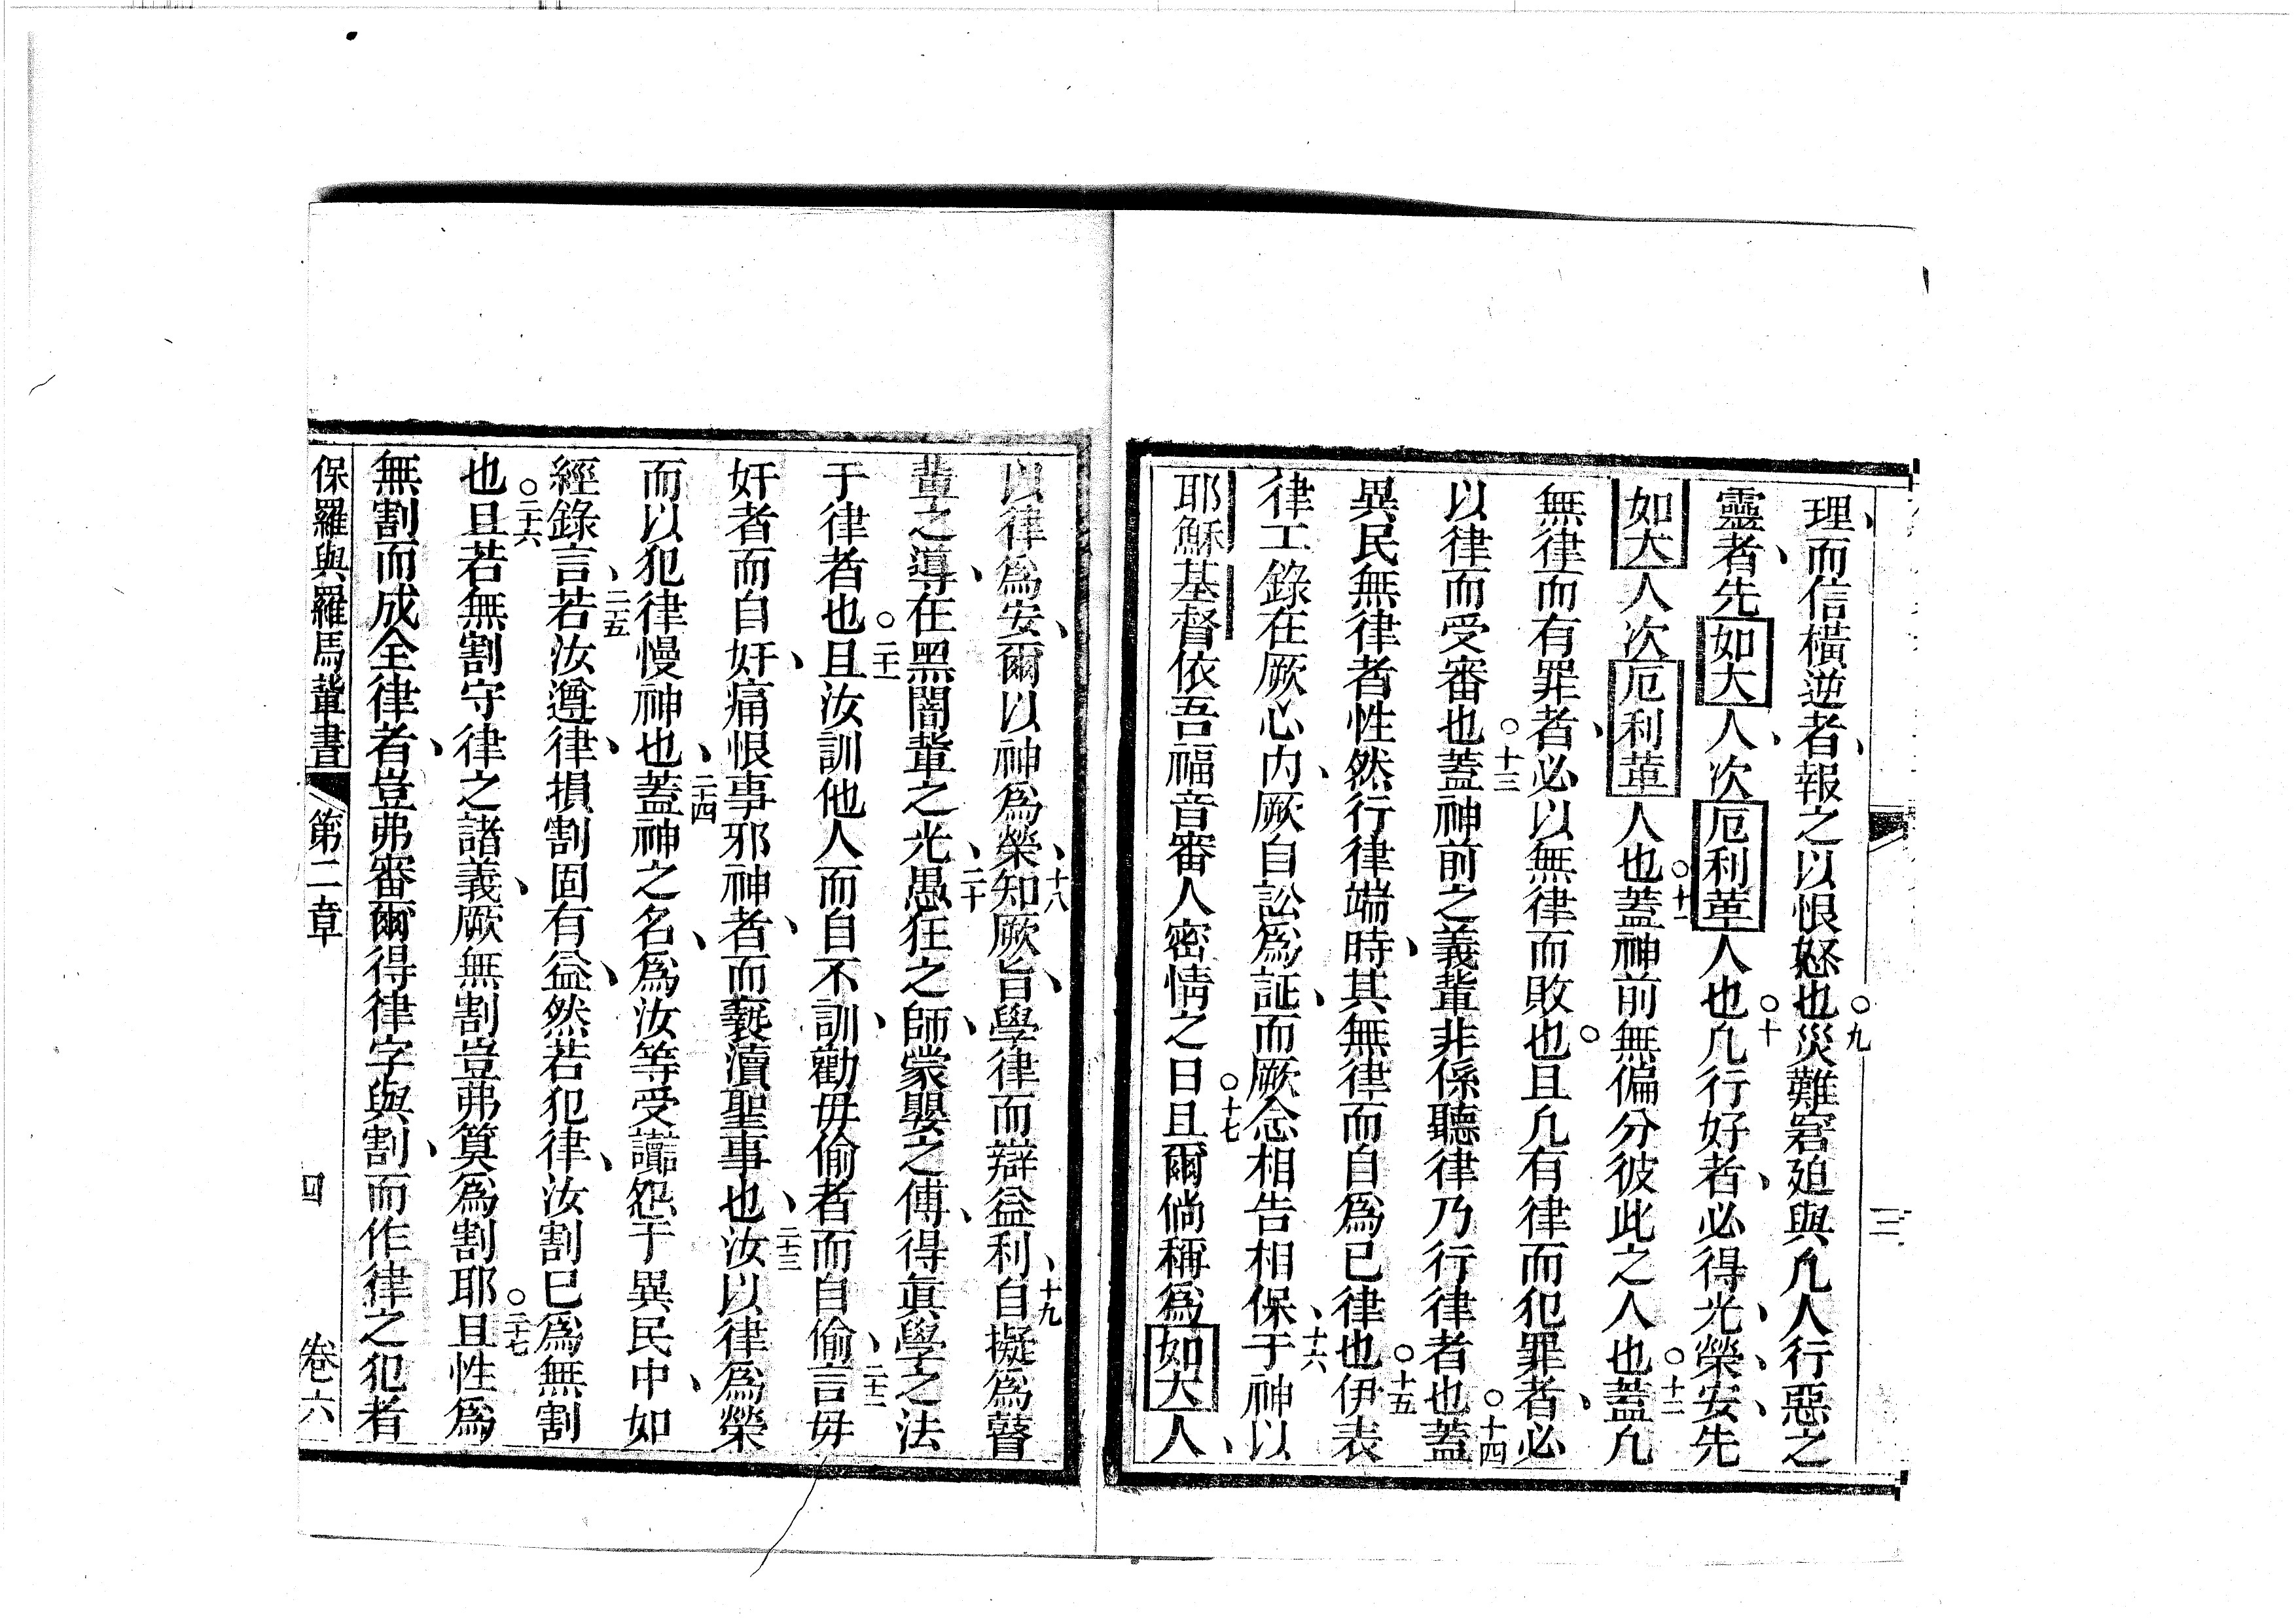 理、而信橫逆者、報之以恨怒也○九災難窘廹與凢人行惡之
靈者、先如大人、次厄利革人也○十凢行好者、必得光、榮、安、先
如大人次厄利革人也○十一蓋神前無偏分彼此之人也○十二蓋凢
無律而有罪者、必以無律而敗也○且凢有律而犯罪者、必
以律而受審也○十三蓋神前之義輩非係聽律乃行律者也○十四蓋
異民無律者性然行律端時、其無律而自爲已律也○十五伊表
律工錄在厥心內、厥自訟爲証、而厥念相告相保、十六于神以
耶穌基督依吾福音審人密情之日○十七且爾倘稱爲如大人、
以律爲安、爾以神爲榮、十八知厥旨、學律而辯益利、十九自擬爲瞽
輩之導、在黑闇輩之光、二十愚狂之師、蒙嬰之傅、得眞學之法
于律者也○二十一且汝訓他人而自不訓、勸毋偷者而自偷、二十二言毋
奸者而自奸、痛恨事邪神者、而褻瀆聖事也、二十三汝以律爲榮
而以犯律慢神也、二十四蓋神之名、爲汝等受讟怨于異民中、如
經錄言、二十五若汝遵律、損割固有益、然若犯律、汝割已爲無割
也○二十六且若無割守律之諸義、厥無割豈弗算爲割耶○二十七且性爲
無割而成全律者、豈弗審爾得律字與割、而作律之犯者
保羅與羅馬輩書 第二章 四 卷六